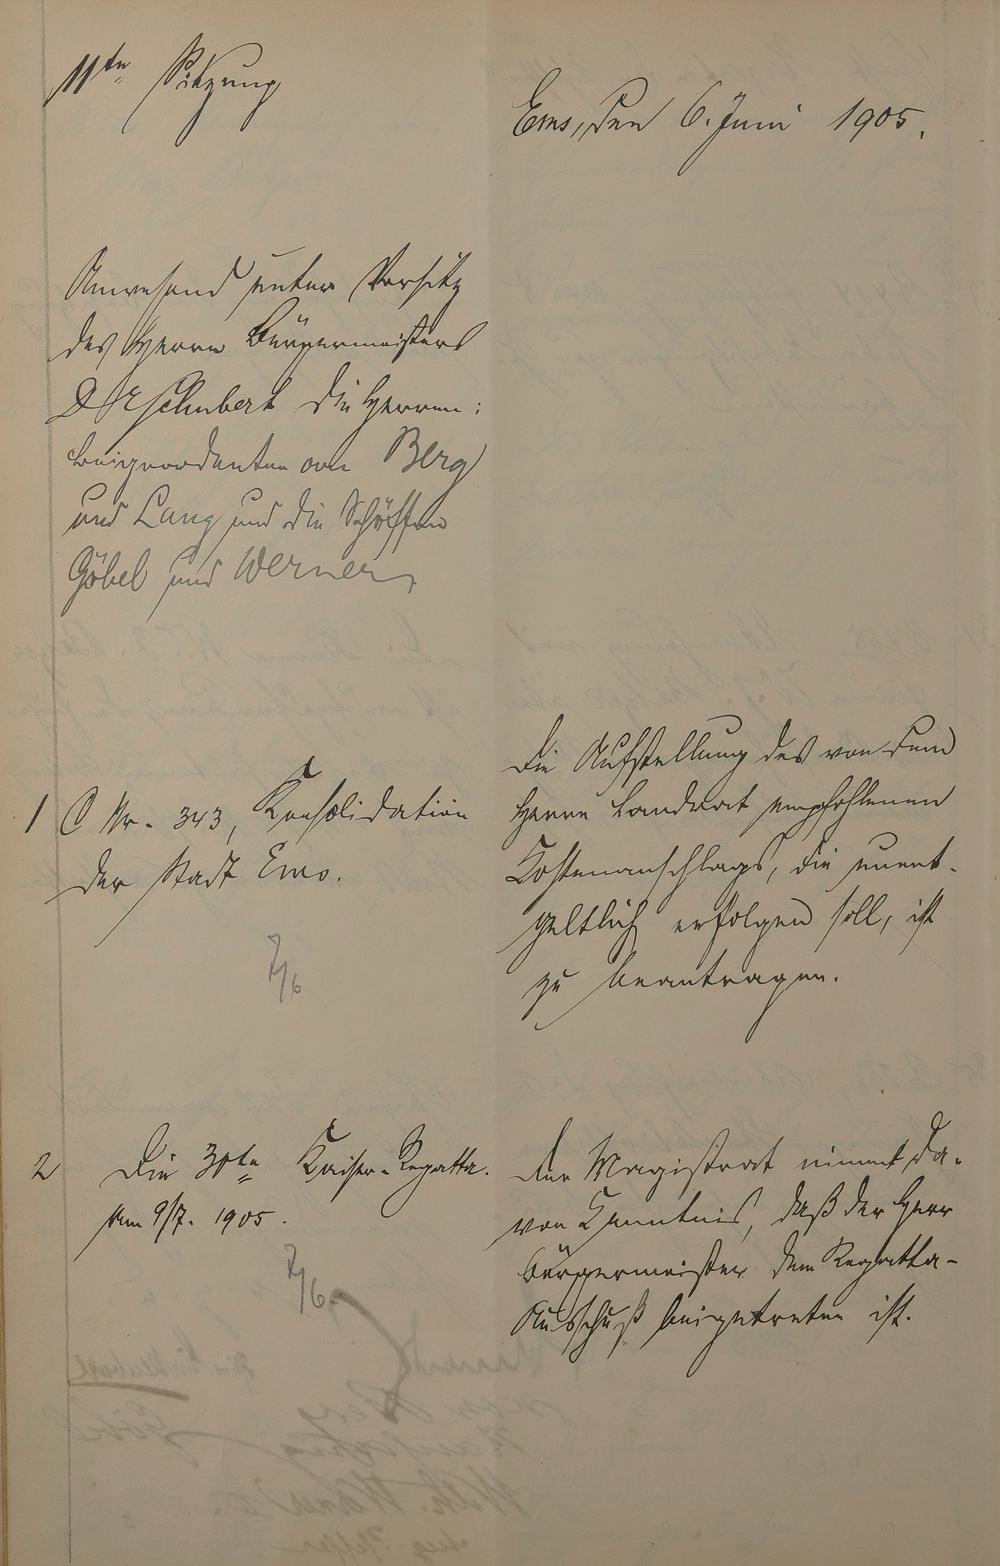 11te Sitzung
Ems, den 6. Juni 1905.
Anwesend unter Vorsitz
des Herrn Bürgermeisters
Dr Schubert die Herren:
Beigeordneten von Berg
und Lang und die Schöffen
Göbel und Werner,
1 C Nr. 343, Konsolidation
der Stadt Ems.
7/6
Die Aufstellung des von dem
Herrn Landrat empfohlenen
Kostenanschlags, die unent-
geltlich erfolgen soll, ist
zu beantragen.
2 Die 30te Kaiser-Regatta.
am 9/7. 1905.
7/6.
Der Magistrat nimmt da-
von Kenntnis, daß der Herr
Bürgermeister dem Regatta-
Ausschuß beigetreten ist.